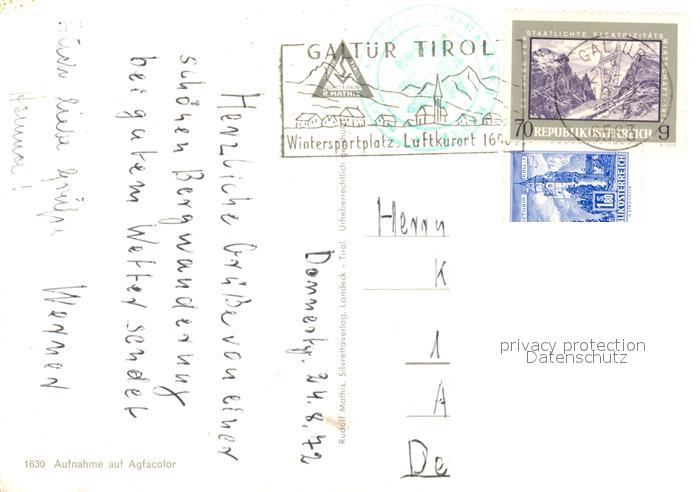 GALTÜR TIROL
R. MATHIS
Wintersportplatz, Luftkurort 16
STAATLICHE ELEKTRIZITÄTS
GALTÜR
70
REPUBLIK ÖSTERREICH
g
1 S
1.80
REPUBLIK ÖSTERREICH
Donnerstg. 24.8.72
Herzliche Grüße von einer
schönen Bergwanderung
bei gutem Wetter sendet
Werner
Auch liebe Grüße
Herrn
K
1
A
De
Rudolf Mathis, Silvrettaverlag, Landeck - Tirol. Urheberrechtlich geschützt
1630 Aufnahme auf Agfacolor
privacy protection
Datenschutz